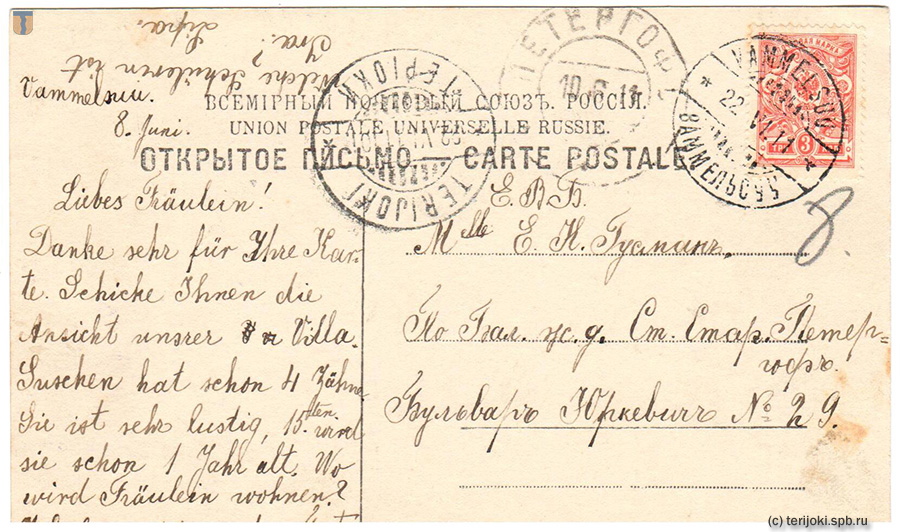 Ira.
Welche Schuleren ist
Vammelsuu.
8. Juni.
ВСЕМІРНЫЙ ПОЧТОВЫЙ СОЮЗЪ. РОССІЯ.
UNION POSTALE UNIVERSELLE RUSSIE.
ОТКРЫТОЕ ПИСЬМО. — CARTE POSTALE
Liebes Fräulein!
Danke sehr für Ihre Kar-
te. Schicke Ihnen die
Ansicht unsrer Villa.
Suschen hat schon 4 Zähne
Sie ist sehr lustig, 15.ten wird
sie schon 1 Jahr alt. Wo
wird Fräulein wohnen?
Е.В.Б.
Mlle Е. К. Гусминъ,
По Бал. ж. д. Ст. Стар. Петер=
гофъ.
Бульваръ Юркевичъ № 29.
ПЕТЕРГОФ
10. 6. 11
TERIJOKI
ТЕРІОКИ
VAMMELSUU
22. VI. 11
ВАММЕЛЬСУУ
3
8
(c) terijoki.spb.ru